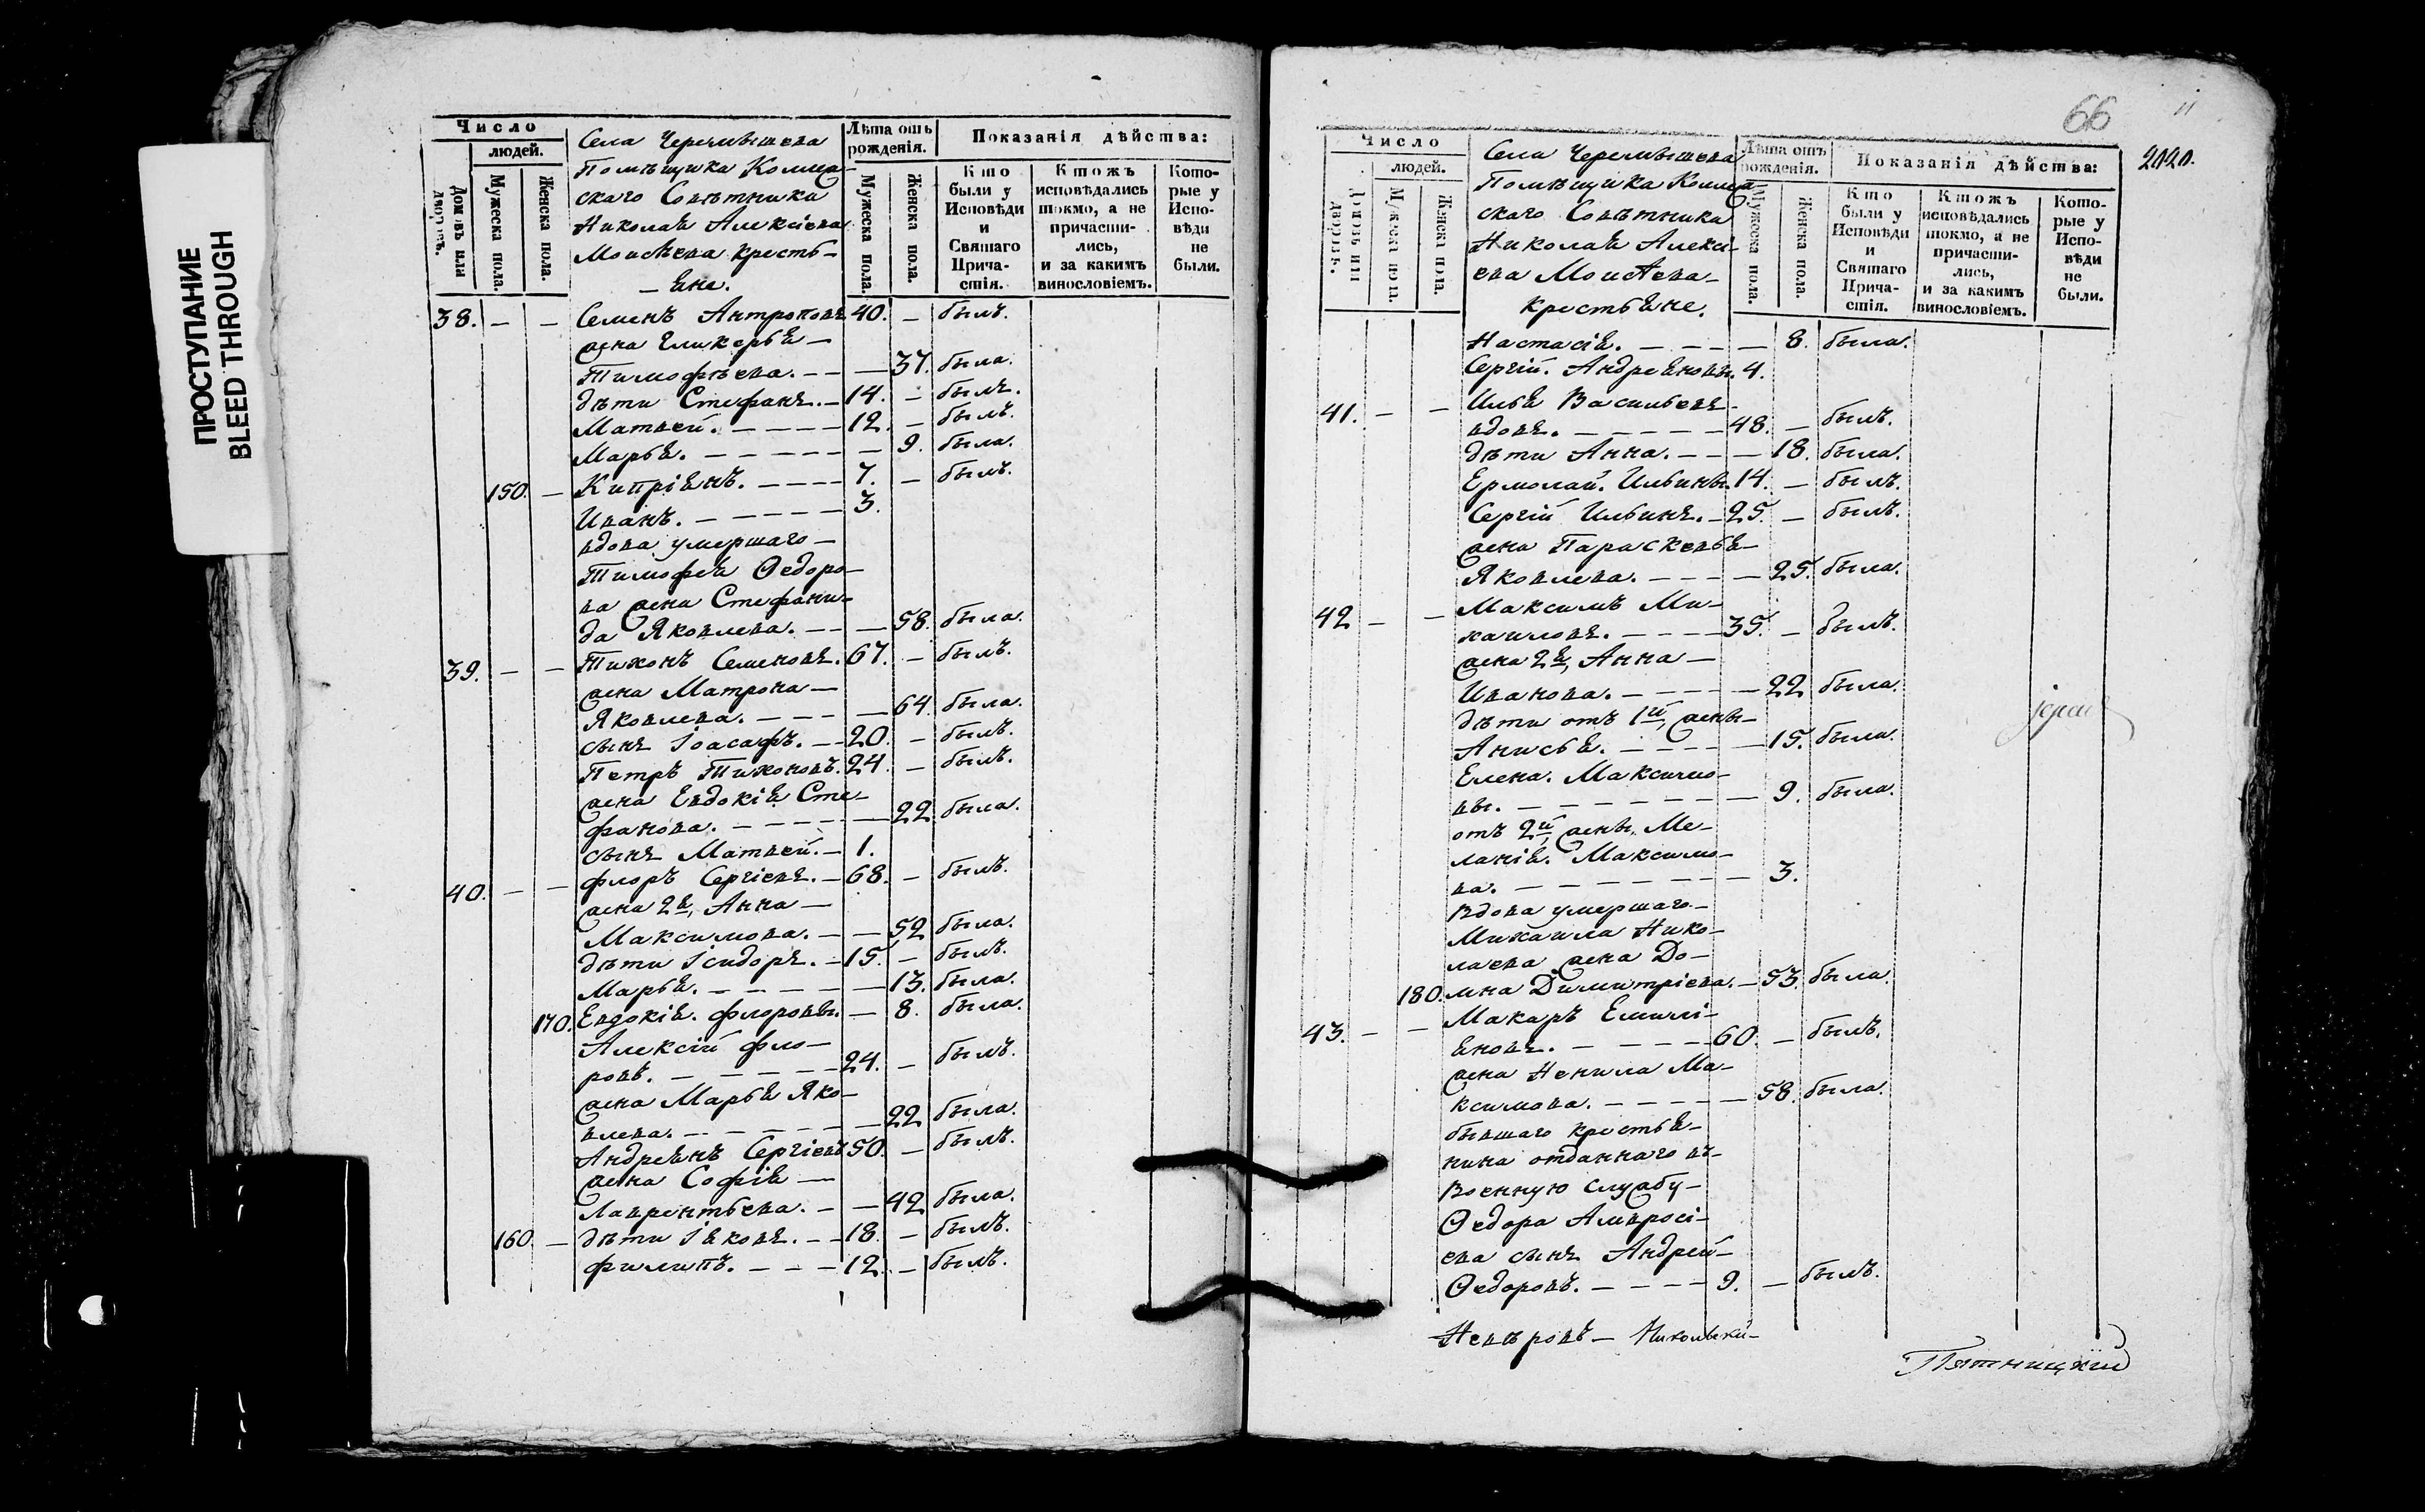 ПРОСТУПАНИЕ
BLEED THROUGH
Число
людей.
Домовъ или дворовъ.
Мужеска пола.
Женска пола.
Села Черемышева
Помѣщика Колле-
скаго Совѣтника
Николая Алексіева
Моисѣева кресть-
яне.
Лѣта отъ рожденія.
Мужеска пола.
Женска пола.
Показанія дѣйства:
Кто были у Исповѣди и Святаго Прича-стія.
Ктожъ исповѣдались токмо, а не причасти-лись, и за какимъ винословіемъ.
Кото-рые у Испо-вѣди не были.
38. — — Семенъ Антроповъ 40. — былъ.
жена Гликерья —
Тимофѣева. — — — 37. была.
дѣти Стефанъ. — 14. — былъ.
Матвей. — — — — 12. — былъ.
Марья. — — — — — — 9. была.
150. — Кипріянъ. — — — — 7. — былъ.
Иванъ. — — — — — 3.
вдова умершаго —
Тимофея Ѳедоро-
ва жена Стефани-
да Яковлева. — — — 58. была.
39. — — Тихонъ Семеновъ. 67. — былъ.
жена Матрона —
Яковлева. — — — — 64. была.
сынъ Іоасафъ. — 20. — былъ.
Петръ Тихоновъ. 24. — былъ.
жена Евдокія Сте-
фанова. — — — — — 22. была.
сынъ Матвей. — 1.
40. — — Флоръ Сергіевъ. — 68. — былъ.
жена 2я, Анна —
Максимова. — — 52 была.
дѣти Ісидоръ. — 15. — былъ.
Марья. — — — — — 13. была.
170. Евдокія. Флоровы. — 8. была.
Алексій Фло-
ровъ. — — — — — 24. — былъ.
жена Марья Яко-
влева. — — — — — 22 была.
Андреянъ Сергіевъ 50. — былъ.
жена Софія —
Лаврентьева. — — 42 была.
160. — дѣти Іяковъ. — — 18. — былъ.
Филипъ. — — — 12. — былъ.
66
2020.
Число
людей.
Домовъ или дворовъ.
Мужеска пола.
Женска пола.
Села Черемышева
Помѣщика Колле-
скаго Совѣтника
Николая Алексі-
ева Моисѣева
крестьяне.
Лѣта отъ рожденія.
Мужеска пола.
Женска пола.
Показанія дѣйства:
Кто были у Исповѣди и Святаго Прича-стія.
Ктожъ исповѣдались токмо, а не причасти-лись, и за какимъ винословіемъ.
Кото-рые у Испо-вѣди не были.
Настасія. — — — — 8. была.
Сергій. Андреяновы. 4.
41. — — Илья Васильевъ
вдовъ. — — — — — 48. — былъ.
дѣти Анна. — — — 18. была.
Ермолай. Ильины. 14. — былъ.
Сергій Ильинъ. — 25. — былъ.
жена Параскевья —
Яковлева. — — — — 25. была.
42 — — Максимъ Ми-
хаиловъ. — — — — 35. — былъ.
жена 2я, Анна —
Иванова. — — — — 22 была.
дѣти отъ 1й, жены —
Анисья. — — — — — 15. была.
Елена. Максимо-
вы. — — — — — — — 9. была.
отъ 2й, жены, Ме-
ланія. Максимо-
ва. — — — — — — — 3.
Вдова умершаго —
Михаила Нико-
лаева жена До-
180. мна Димитріева. — 53. была.
43. — — Макаръ Емилі-
яновъ. — — — — — 60. — былъ.
жена Ненила Ма-
ксимова. — — — — — 58. была.
бывшаго крестья-
нина отданнаго въ
Военную службу —
Ѳедора Амвросі-
ева сынъ Андрей —
Ѳедоровъ. — — — — 9. — былъ.
Невѣровъ — Никольски-
іереи
Пятницкій